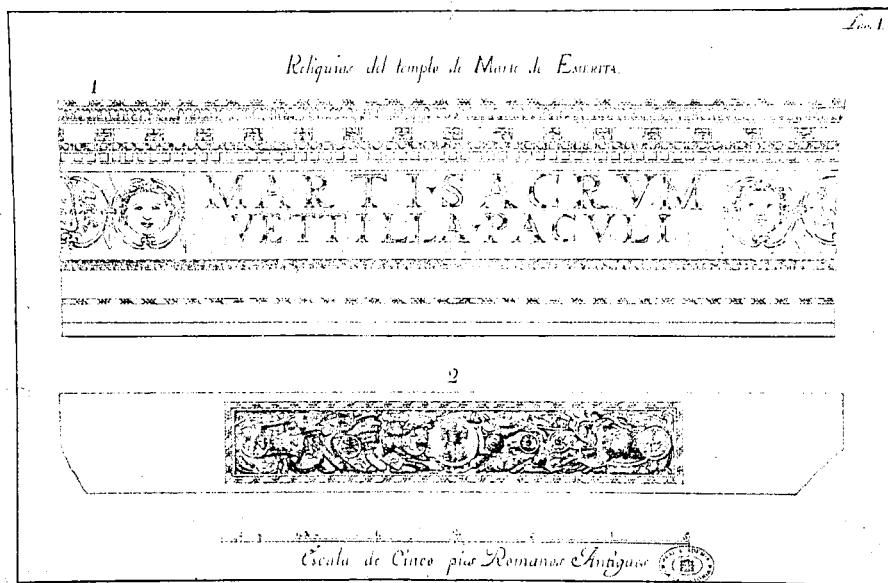 Lam. I.
Reliquias del templo de Marte de EMERITA.
1
MARTI·SACRVM
VETTILLA·PACVLI
2
Escala de Cinco pies Romanos Antiguos